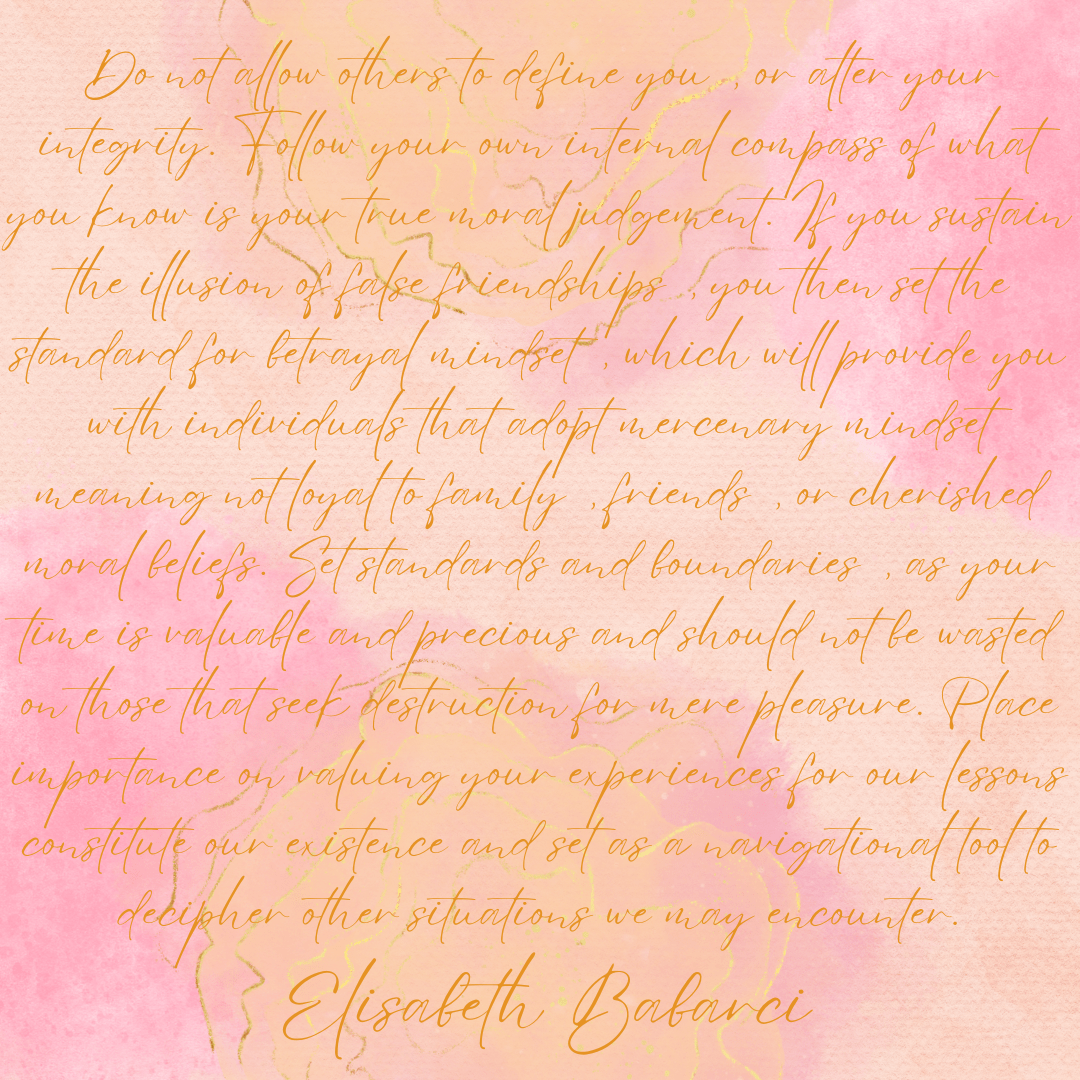 Do not allow others to define you , or alter your
integrity. Follow your own internal compass of what
you know is your true moral judgement. If you sustain
the illusion of false friendships , you then set the
standard for betrayal mindset , which will provide you
with individuals that adopt mercenary mindset
meaning not loyal to family , friends , or cherished
moral beliefs. Set standards and boundaries , as your
time is valuable and precious and should not be wasted
on those that seek destruction for mere pleasure. Place
importance on valuing your experiences for our lessons
constitute our existence and set as a navigational tool to
decipher other situations we may encounter.
Elisabeth Babarci